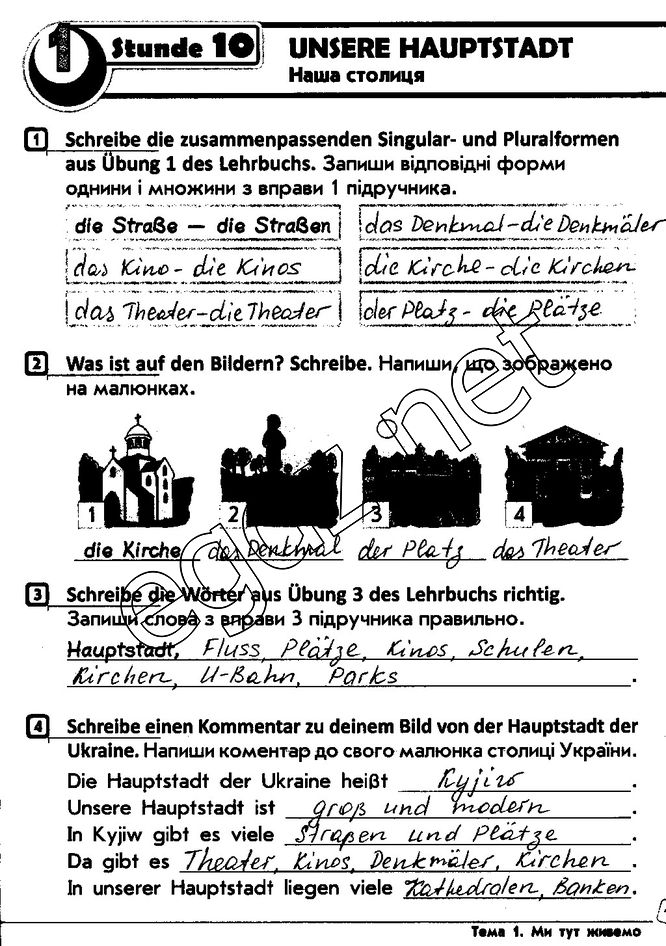 1 Stunde 10 UNSERE HAUPTSTADT
Наша столиця
1 Schreibe die zusammenpassenden Singular- und Pluralformen
aus Übung 1 des Lehrbuchs. Запиши відповідні форми
однини і множини з вправи 1 підручника.
die Straße — die Straßen das Denkmal-die Denkmäler
das Kino-die Kinos die Kirche-die Kirchen
das Theater-die Theater der Platz-die Plätze
2 Was ist auf den Bildern? Schreibe. Напиши, що зображено
на малюнках.
1 2 3 4
die Kirche das Denkmal der Platz das Theater
3 Schreibe die Wörter aus Übung 3 des Lehrbuchs richtig.
Запиши слова з вправи 3 підручника правильно.
Hauptstadt, Fluss, Plätze, Kinos, Schulen,
Kirchen, U-Bahn, Parks.
4 Schreibe einen Kommentar zu deinem Bild von der Hauptstadt der
Ukraine. Напиши коментар до свого малюнка столиці України.
Die Hauptstadt der Ukraine heißt Kyjiw.
Unsere Hauptstadt ist groß und modern.
In Kyjiw gibt es viele Straßen und Plätze.
Da gibt es Theater, Kinos, Denkmäler, Kirchen.
In unserer Hauptstadt liegen viele Kathedralen, Banken.
Тема 1. Ми тут живемо
egdz.net